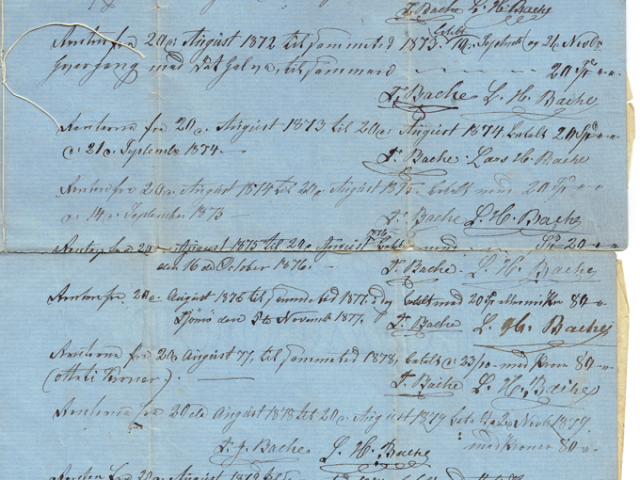 T. Bache L. H. Bache
fra 20de August 1872 til sammeted 1873 betalt 14 Septembr og 26 Novbr
hver gang med til sammen 20 Spd
T. Bache L. H. Bache
Renterne fra 20de August 1873 til 20de August 1874 betalt 20 Spd
d. 21de September 1874
T. Bache Lars H. Bache
Renter fra 20de August 1874 til 20de August 1875 betalt med 20 Spd
d. 14de September 1875
T. Bache L. H. Bache
Renter fra 20de August 1875 til 20de August 1876 betalt med Spd 20
den 16de October 1876.
T. Bache. L. H. Bache
Renter fra 20de August 1876 til sammeted 1877 betalt med 20 Spd 80
den 5te Novembr 1877.
T. Bache L. H. Bache
Renterne fra 20de August 77, til sammeted 1878, betalt d. 23/10 med Kroner 80
(Otti Kroner).
T. Bache L. H. Bache
Renterne fra 20de August 1878 til 20de August 1879 Novbr 1879
med Kroner 80
T. J. Bache L. H. Bache
Renter fra 20de August 1879